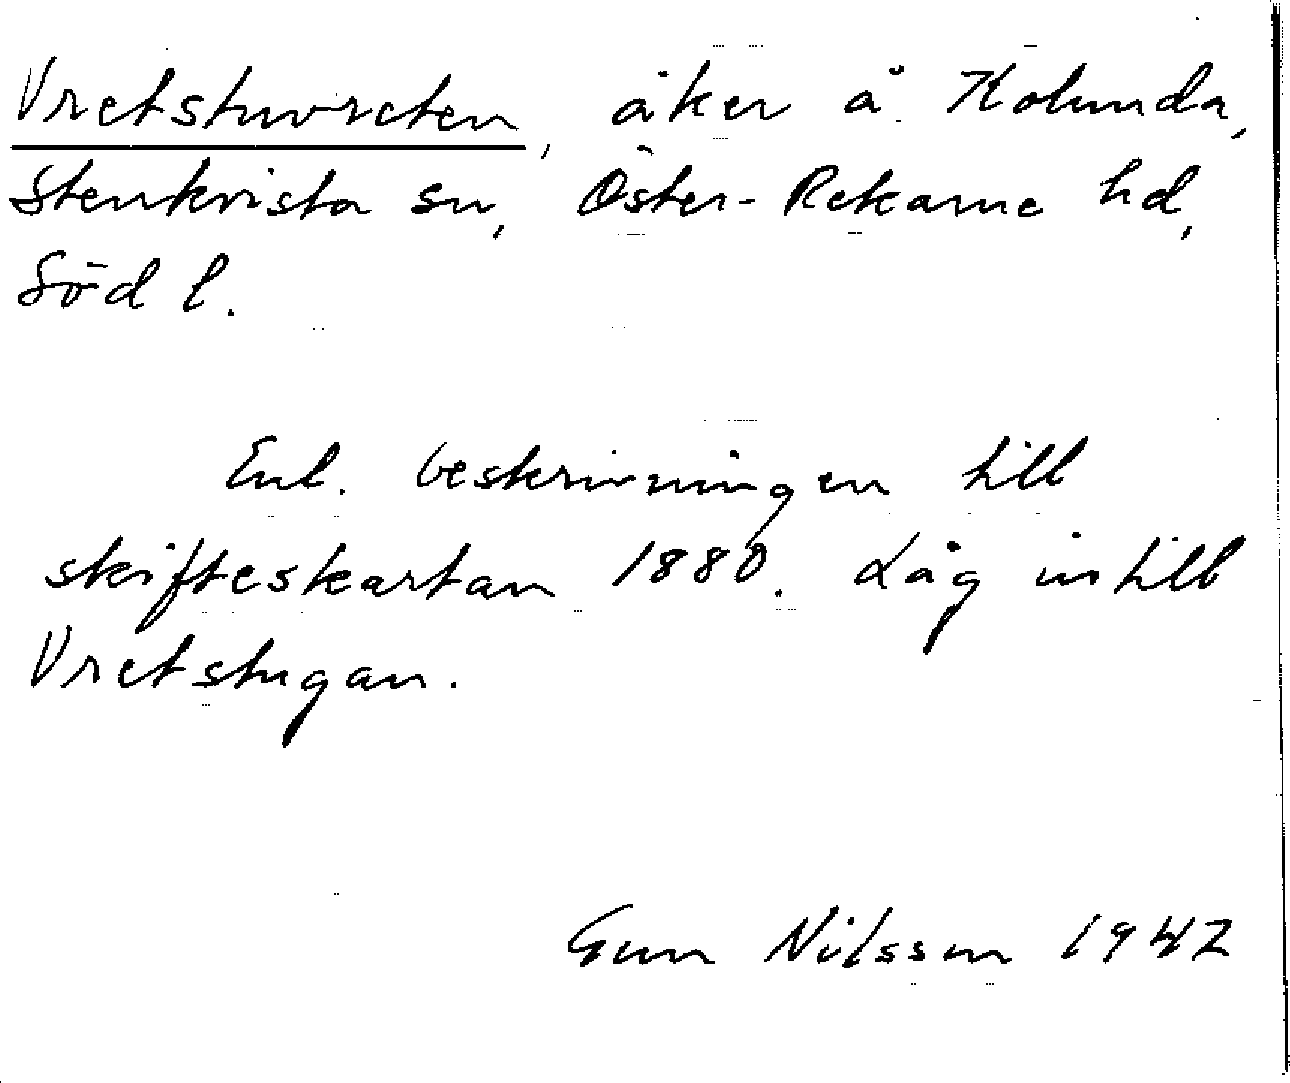 Vretstuvreten, åker å Kolunda,
Stenkvista sn, Öster-Rekarne hd,
Söd l.
Enl. beskrivningen till
skifteskartan 1880. Låg intill
Vretstugan.
Gun Nilsson 1942